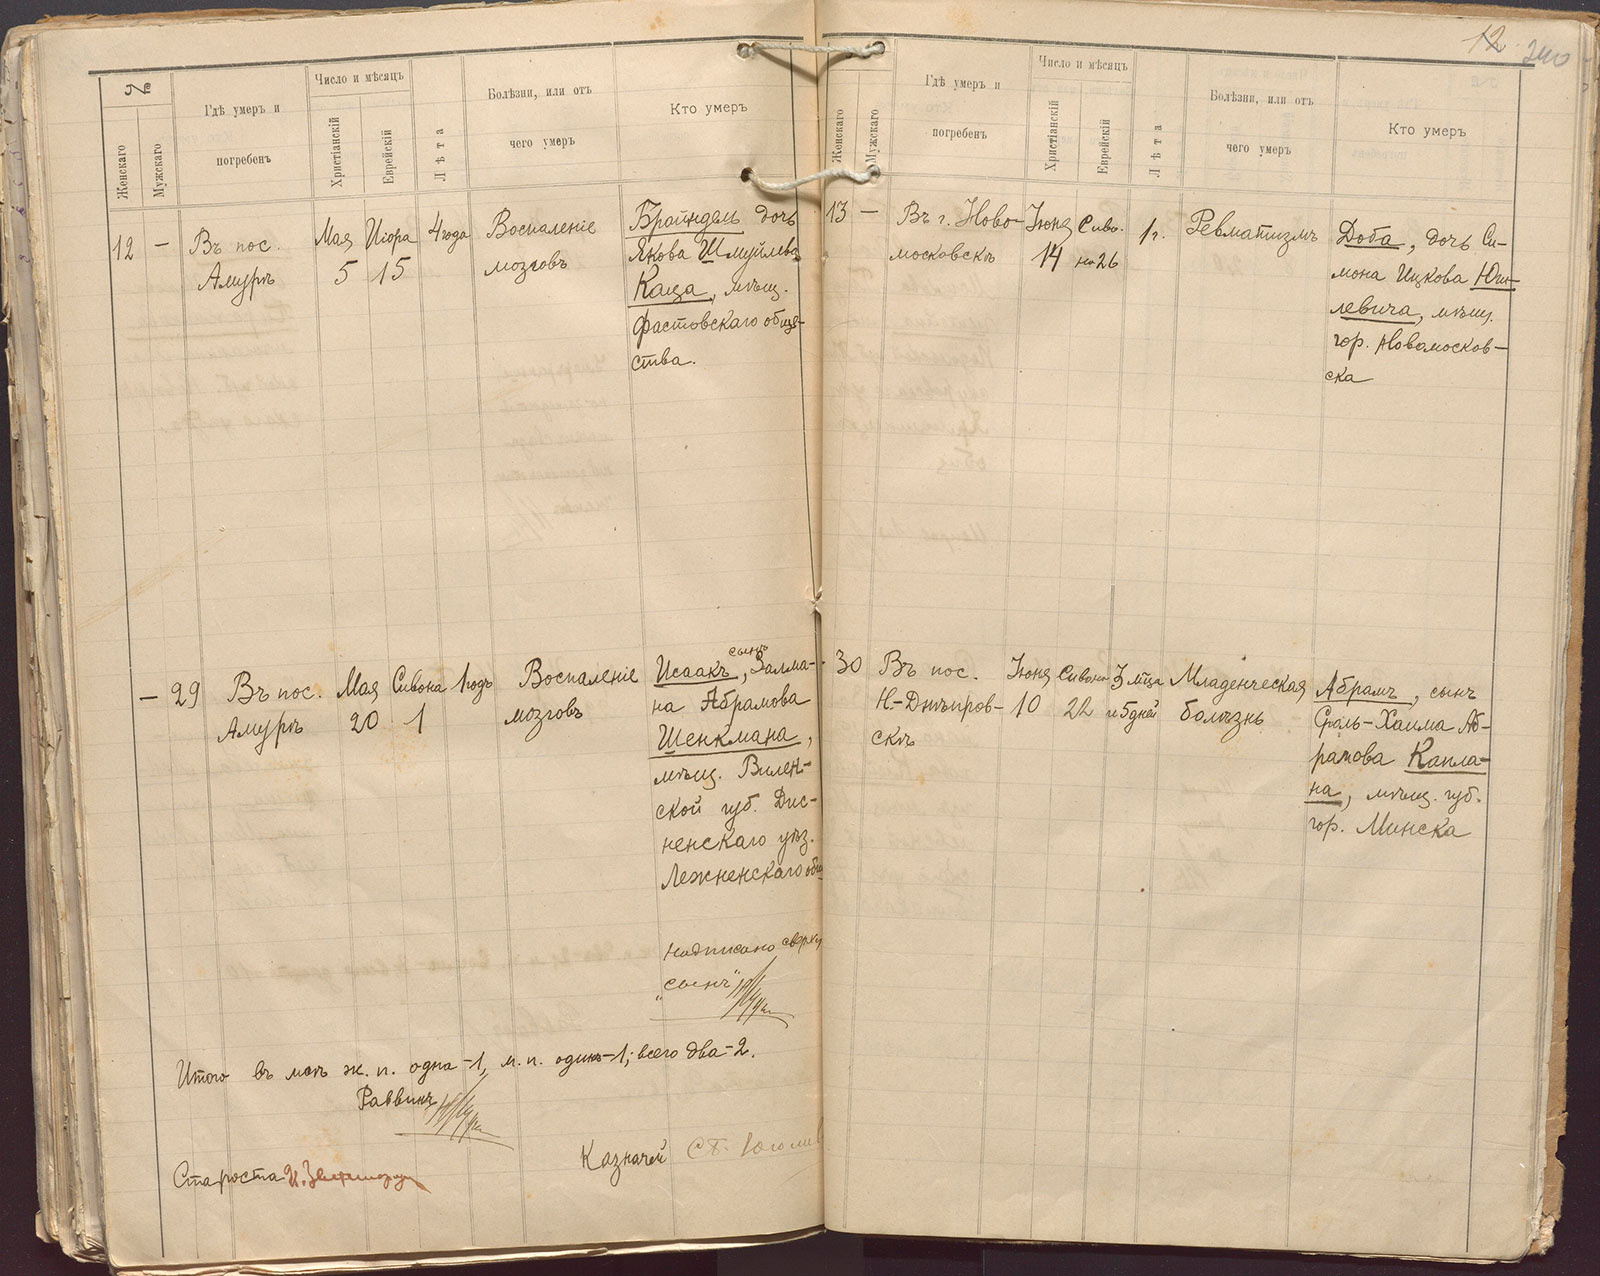 12
240
№
Женскаго
Мужскаго
Гдѣ умеръ и
погребенъ
Число и мѣсяцъ
Христіанскій
Еврейскій
Лѣта
Болѣзни, или отъ
чего умеръ
Кто умеръ
12
—
Въ пос.
Амурѣ
Мая
5
Иіора
15
4 года
Воспаленіе
мозговъ
Брайндель дочь
Якова Шмуйлева
Каца, мѣщ.
Фастовскаго обще-
ства.
—
29
Въ пос.
Амурѣ
Мая
20
Сивона
1
1 годъ
Воспаленіе
мозговъ
сынъ
Исаакъ, Залма-
на Абрамова
Шенкмана,
мѣщ. Вилен-
ской губ. Дис-
ненскаго уѣз.
Лежненскаго общ
Надписано сверху
„сынъ"
Итого въ маѣ ж. п. одна-1, м. п. одинъ-1; всего два-2.
Раввинъ
Староста
Казначей
Женскаго
Мужскаго
Гдѣ умеръ и
погребенъ
Число и мѣсяцъ
Христіанскій
Еврейскій
Лѣта
Болѣзни, или отъ
чего умеръ
Кто умеръ
13
—
Въ г. Ново-
московскѣ
Іюня
14
Сиво-
на 26
1 г.
Ревматизмъ
Доба, дочь Си-
мона Ицкова Юги-
левича, мѣщ.
гор. Новомосков-
ска
30
Въ пос.
Н.-Днѣпров-
скѣ
Іюня
10
Сивона
22
3 м-ца
и 5 дней
Младенческая
болѣзнь
Абрамъ, сынъ
Сроль-Хаима Аб-
рамова Капла-
на, мѣщ. губ.
гор. Минска